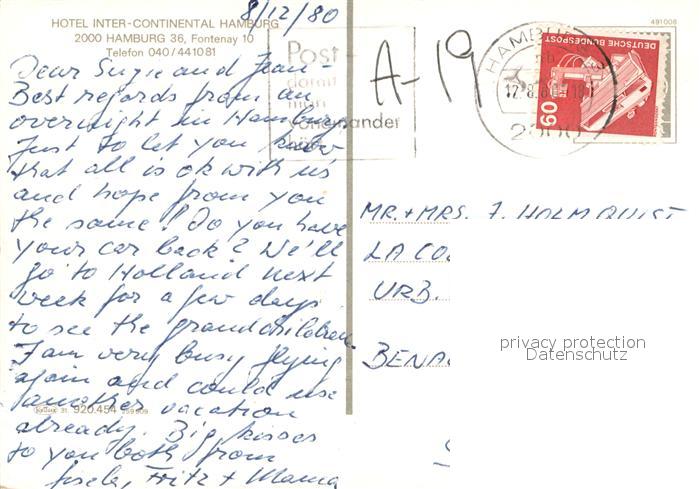 HOTEL INTER-CONTINENTAL HAMBURG
2000 HAMBURG 36, Fontenay 10
Telefon 040/441081
8/12/80
491008
Dear Suzie and Jean
Best regards from an
overnight in Hamburg.
Just to let you know
that all is ok with us
and hope from you
the same! Do you have
your car back? We'll
go to Holland next
week for a few days
to see the grandchildren.
I am very busy flying
again and could use
another vacation
already. Big kisses
to you both from
Fritz + Mama
31. 920.454
Post
damit
man
voneinander
A-19
HAMBURG
12.8.80
2000
DEUTSCHE BUNDESPOST
60
MR.+MRS. F. HOLMQUIST
LA CO
URB.
BENA
privacy protection
Datenschutz